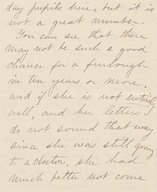 day pupils here, but it is
not a great number.
You can see that there
may not be such a good
chance for a furlough
in ten years or more
and if she is not entirely
well, and her letters
do not sound that way
since she was still going
to a doctor, she had
much better not come